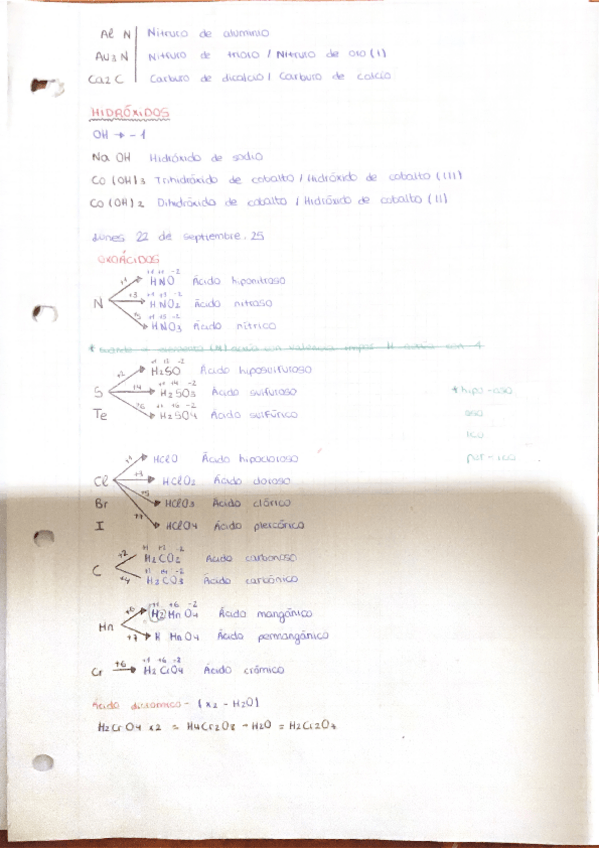 Al N | Nitruro de aluminio
Au3 N | Nitruro de trioro / Nitruro de oro (I)
Ca2 C | Carburo de dicalcio / Carburo de calcio
HIDRÓXIDOS
OH → -1
Na OH Hidróxido de sodio
Co (OH)3 Trihidróxido de cobalto / Hidróxido de cobalto (III)
Co (OH)2 Dihidróxido de cobalto / Hidróxido de cobalto (II)
Lunes 22 de septiembre. 25
OXOÁCIDOS
+1 +1 -2
+1 HNO Ácido hiponitroso
+1 +3 -2
N +3 HNO2 Ácido nitroso
+1 +5 -2
+5 HNO3 Ácido nítrico
+1 +2 -2
+2 H2SO Ácido hiposulfuroso
S +4 H2SO3 Ácido sulfuroso * hipo - oso
+1 +4 -2
Te +6 H2SO4 Ácido sulfúrico oso
+1 +6 -2
ico
+1 HClO Ácido hipocloroso per - ico
Cl +3 HClO2 Ácido cloroso
Br +5 HClO3 Ácido clórico
I +7 HClO4 Ácido perclórico
+1 +2 -2
+2 H2CO2 Ácido carbonoso
C +1 +4 -2
+4 H2CO3 Ácido carbónico
+1 +6 -2
+6 H2 MnO4 Ácido mangánico
Mn
+7 H MnO4 Ácido permangánico
+1 +6 -2
Cr +6 H2CrO4 Ácido crómico
Ácido dicrómico - (x2 - H2O)
H2CrO4 x2 = H4Cr2O8 - H2O = H2Cr2O7